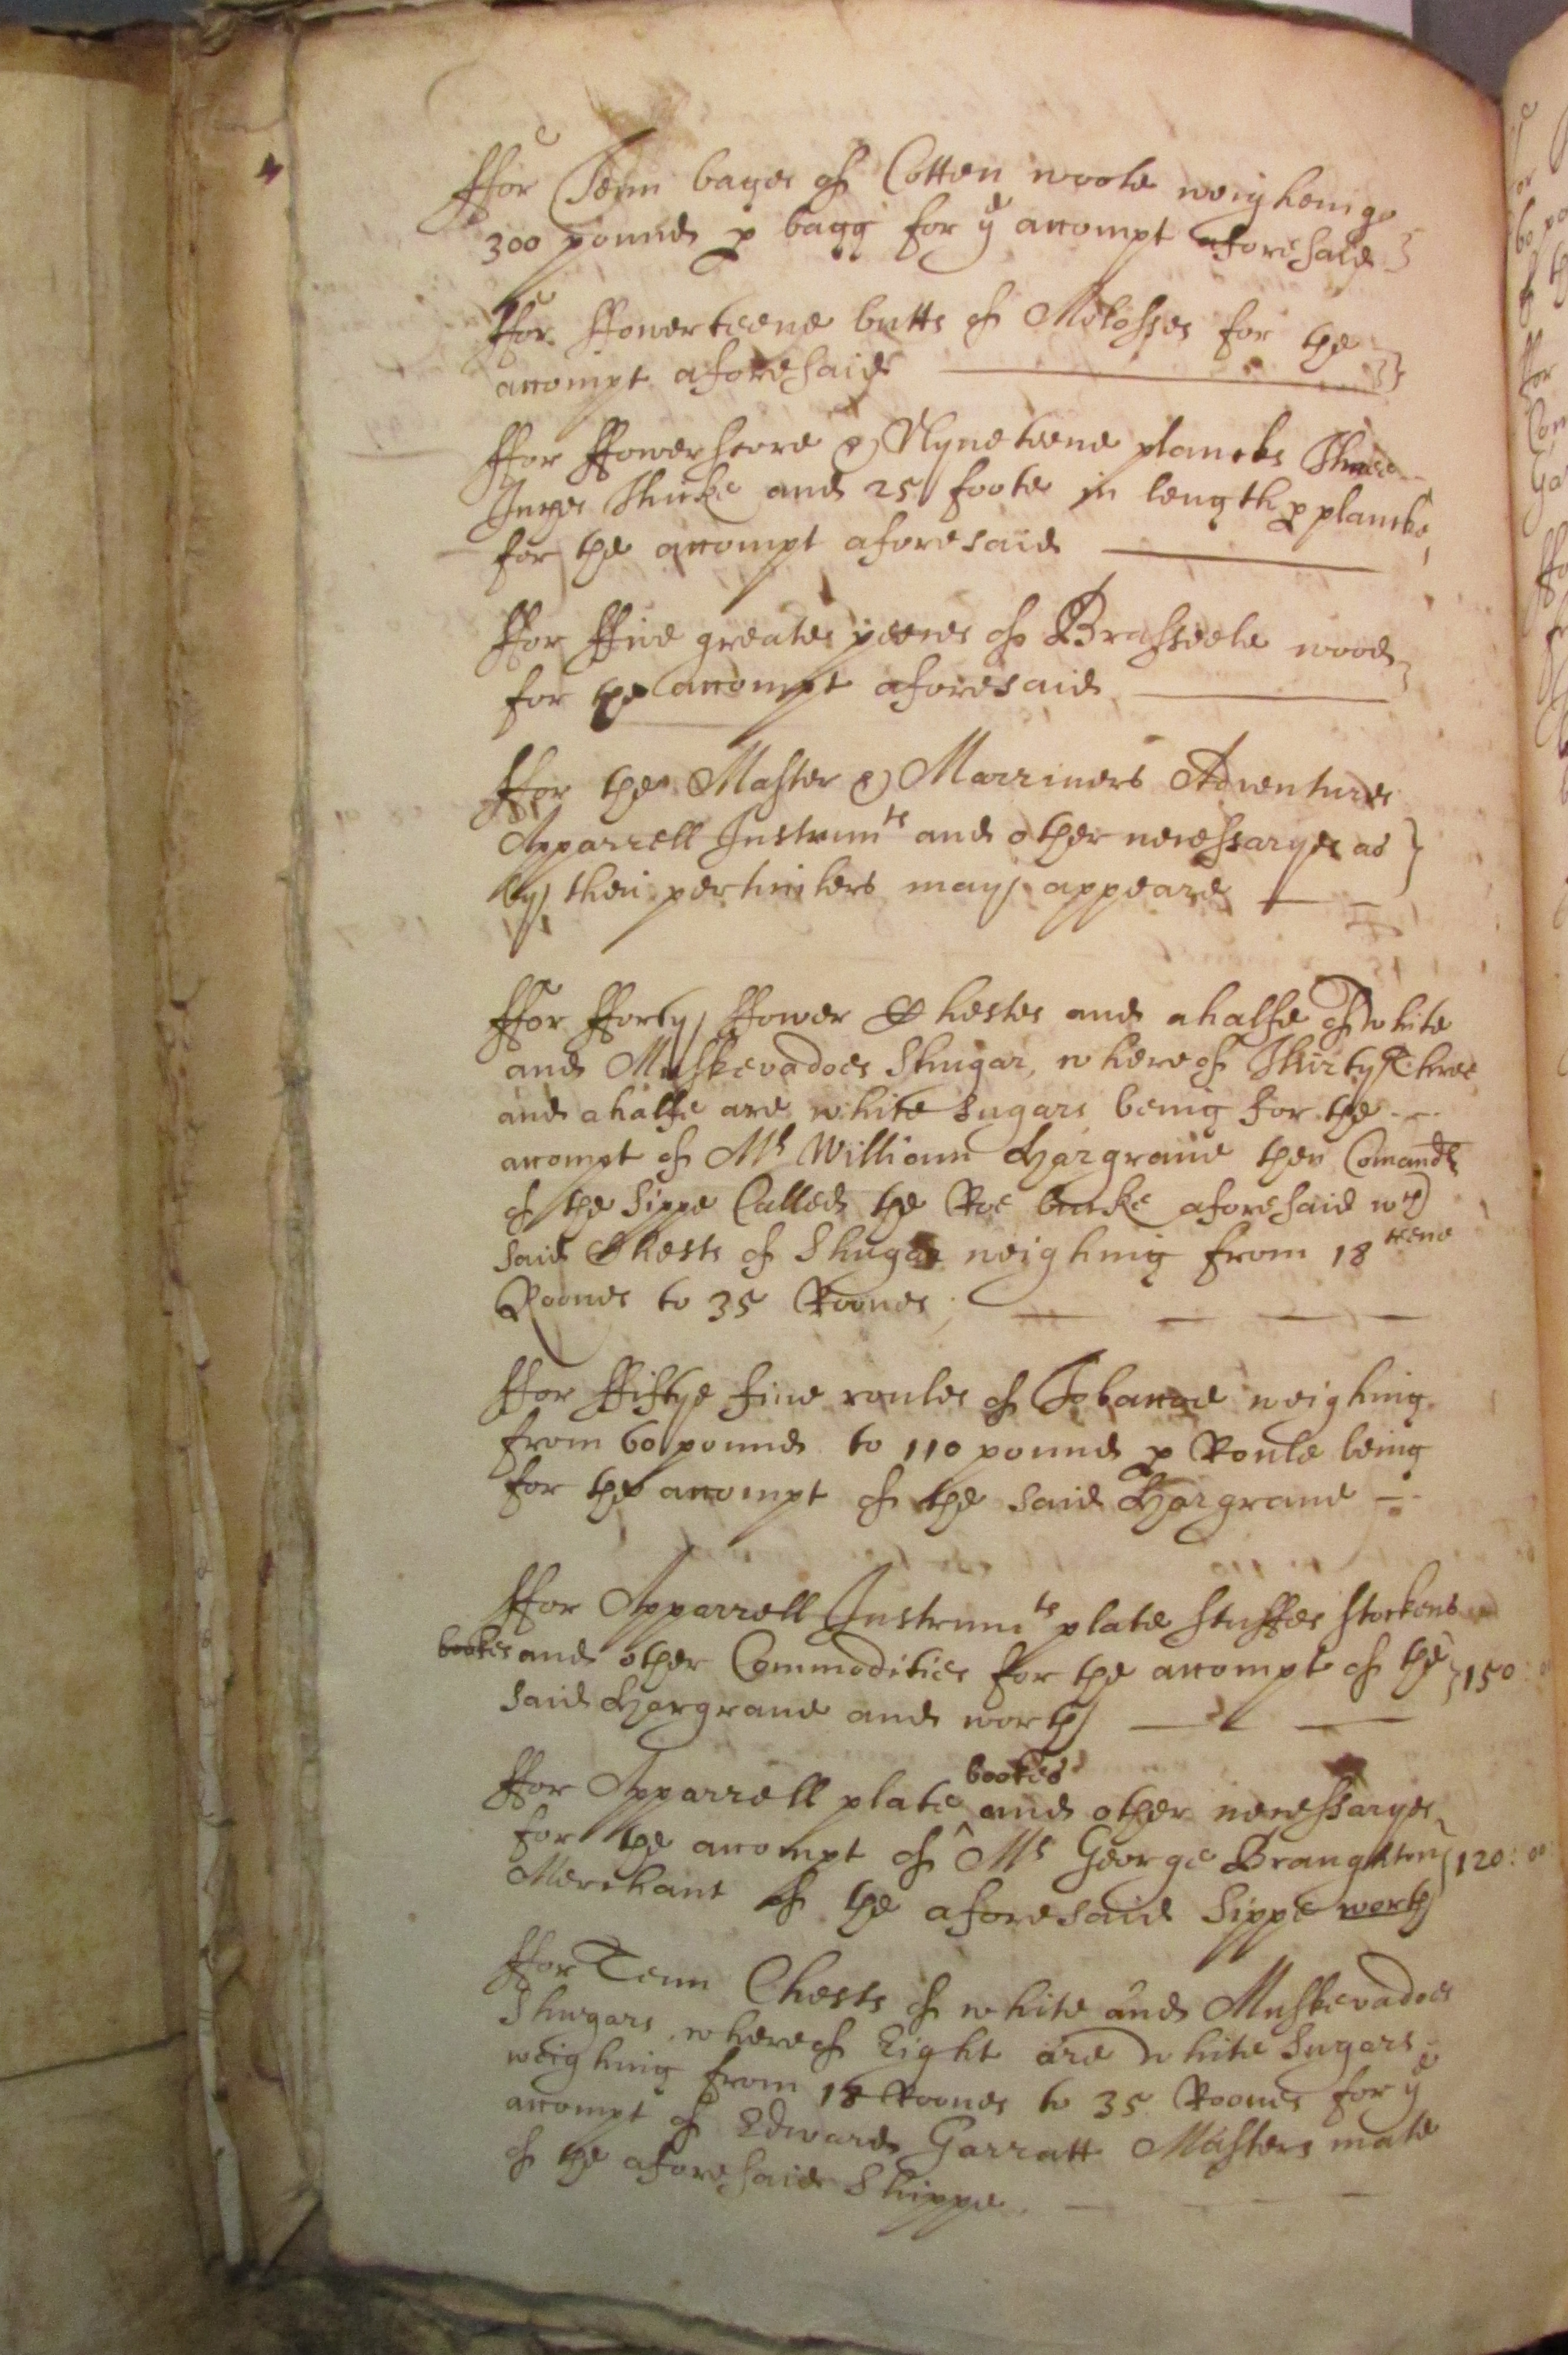 ffor Tenn bages of Cotten woole weigheinge
300 pound p bagg for ye accompt aforesaid
ffor ffowerteene butts of Molosses for the
accompt aforesaid
ffor ffowerscore & Nyneteene plancks Three
Inches Thicke and 25 foote in length p plancke
for the accompt aforesaid
ffor ffive greate peeces of Brasseele wood
for the accompt aforesaid
ffor the Master & Marriners Adventures
Apparrell Instrumts and other necessaryes as
by their perticulers may appeare
ffor fforty ffower Chestes and a halfe of white
and Muskevadoes Shugar, whereof Thirty three
and a halfe are white Sugars being for the
accompt of Mr William Hargrave then Comandr
of the Sippe Called the Roe bucke aforesaid wch
said Chests of Shugar weighing from 18 teene
Rooves to 35 Rooves
ffor ffiftye five roules of Tobaccoe weighing
from 60 pound to 110 pound p Roule being
for the accompt of the said Hargrave
ffor Apparrell Instrumts plate stuffes Stockens
bookes and other Commodities for the accompt of the 150:
said Hargrave and worth
ffor Apparrell plate bookes and other necessaryes
for the accompt of Mr George Braughton 120: 00
Merchant of the aforesaid Sippe worth
ffor Tenn Chests of white and Muskevadoes
Shugars, whereof Eight are white Sugars
weighing from 18 Rooves to 35 Rooves for ye
accompt of Edward Garratt Masters mate
of the aforesaid Shippe